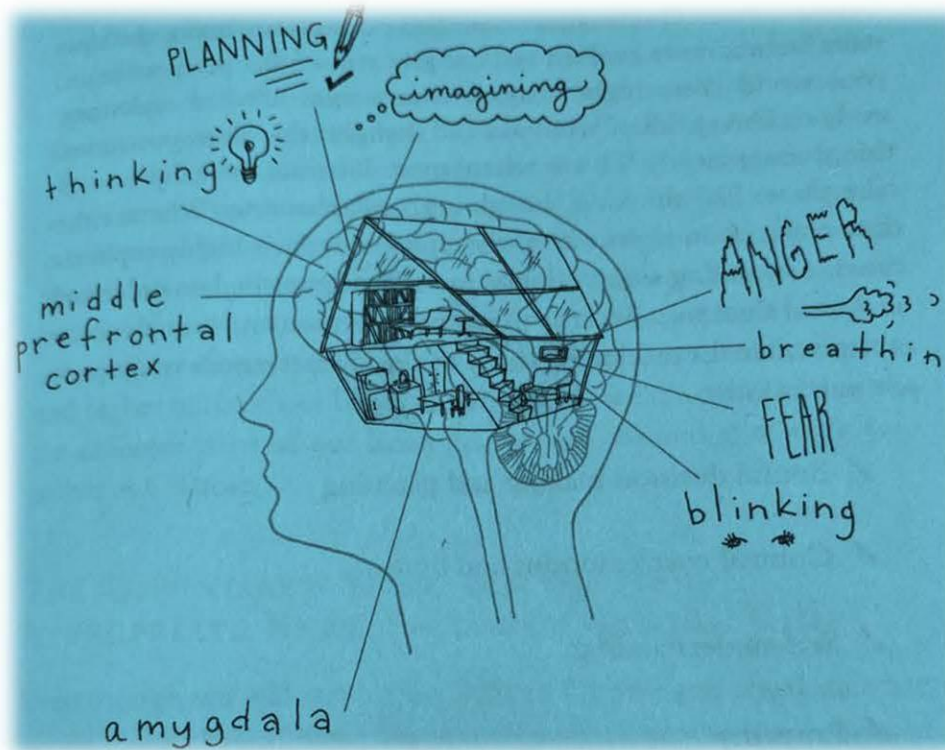 PLANNING
imagining
thinking
ANGER
middle
prefrontal
cortex
breathin
FEAR
blinking
amygdala